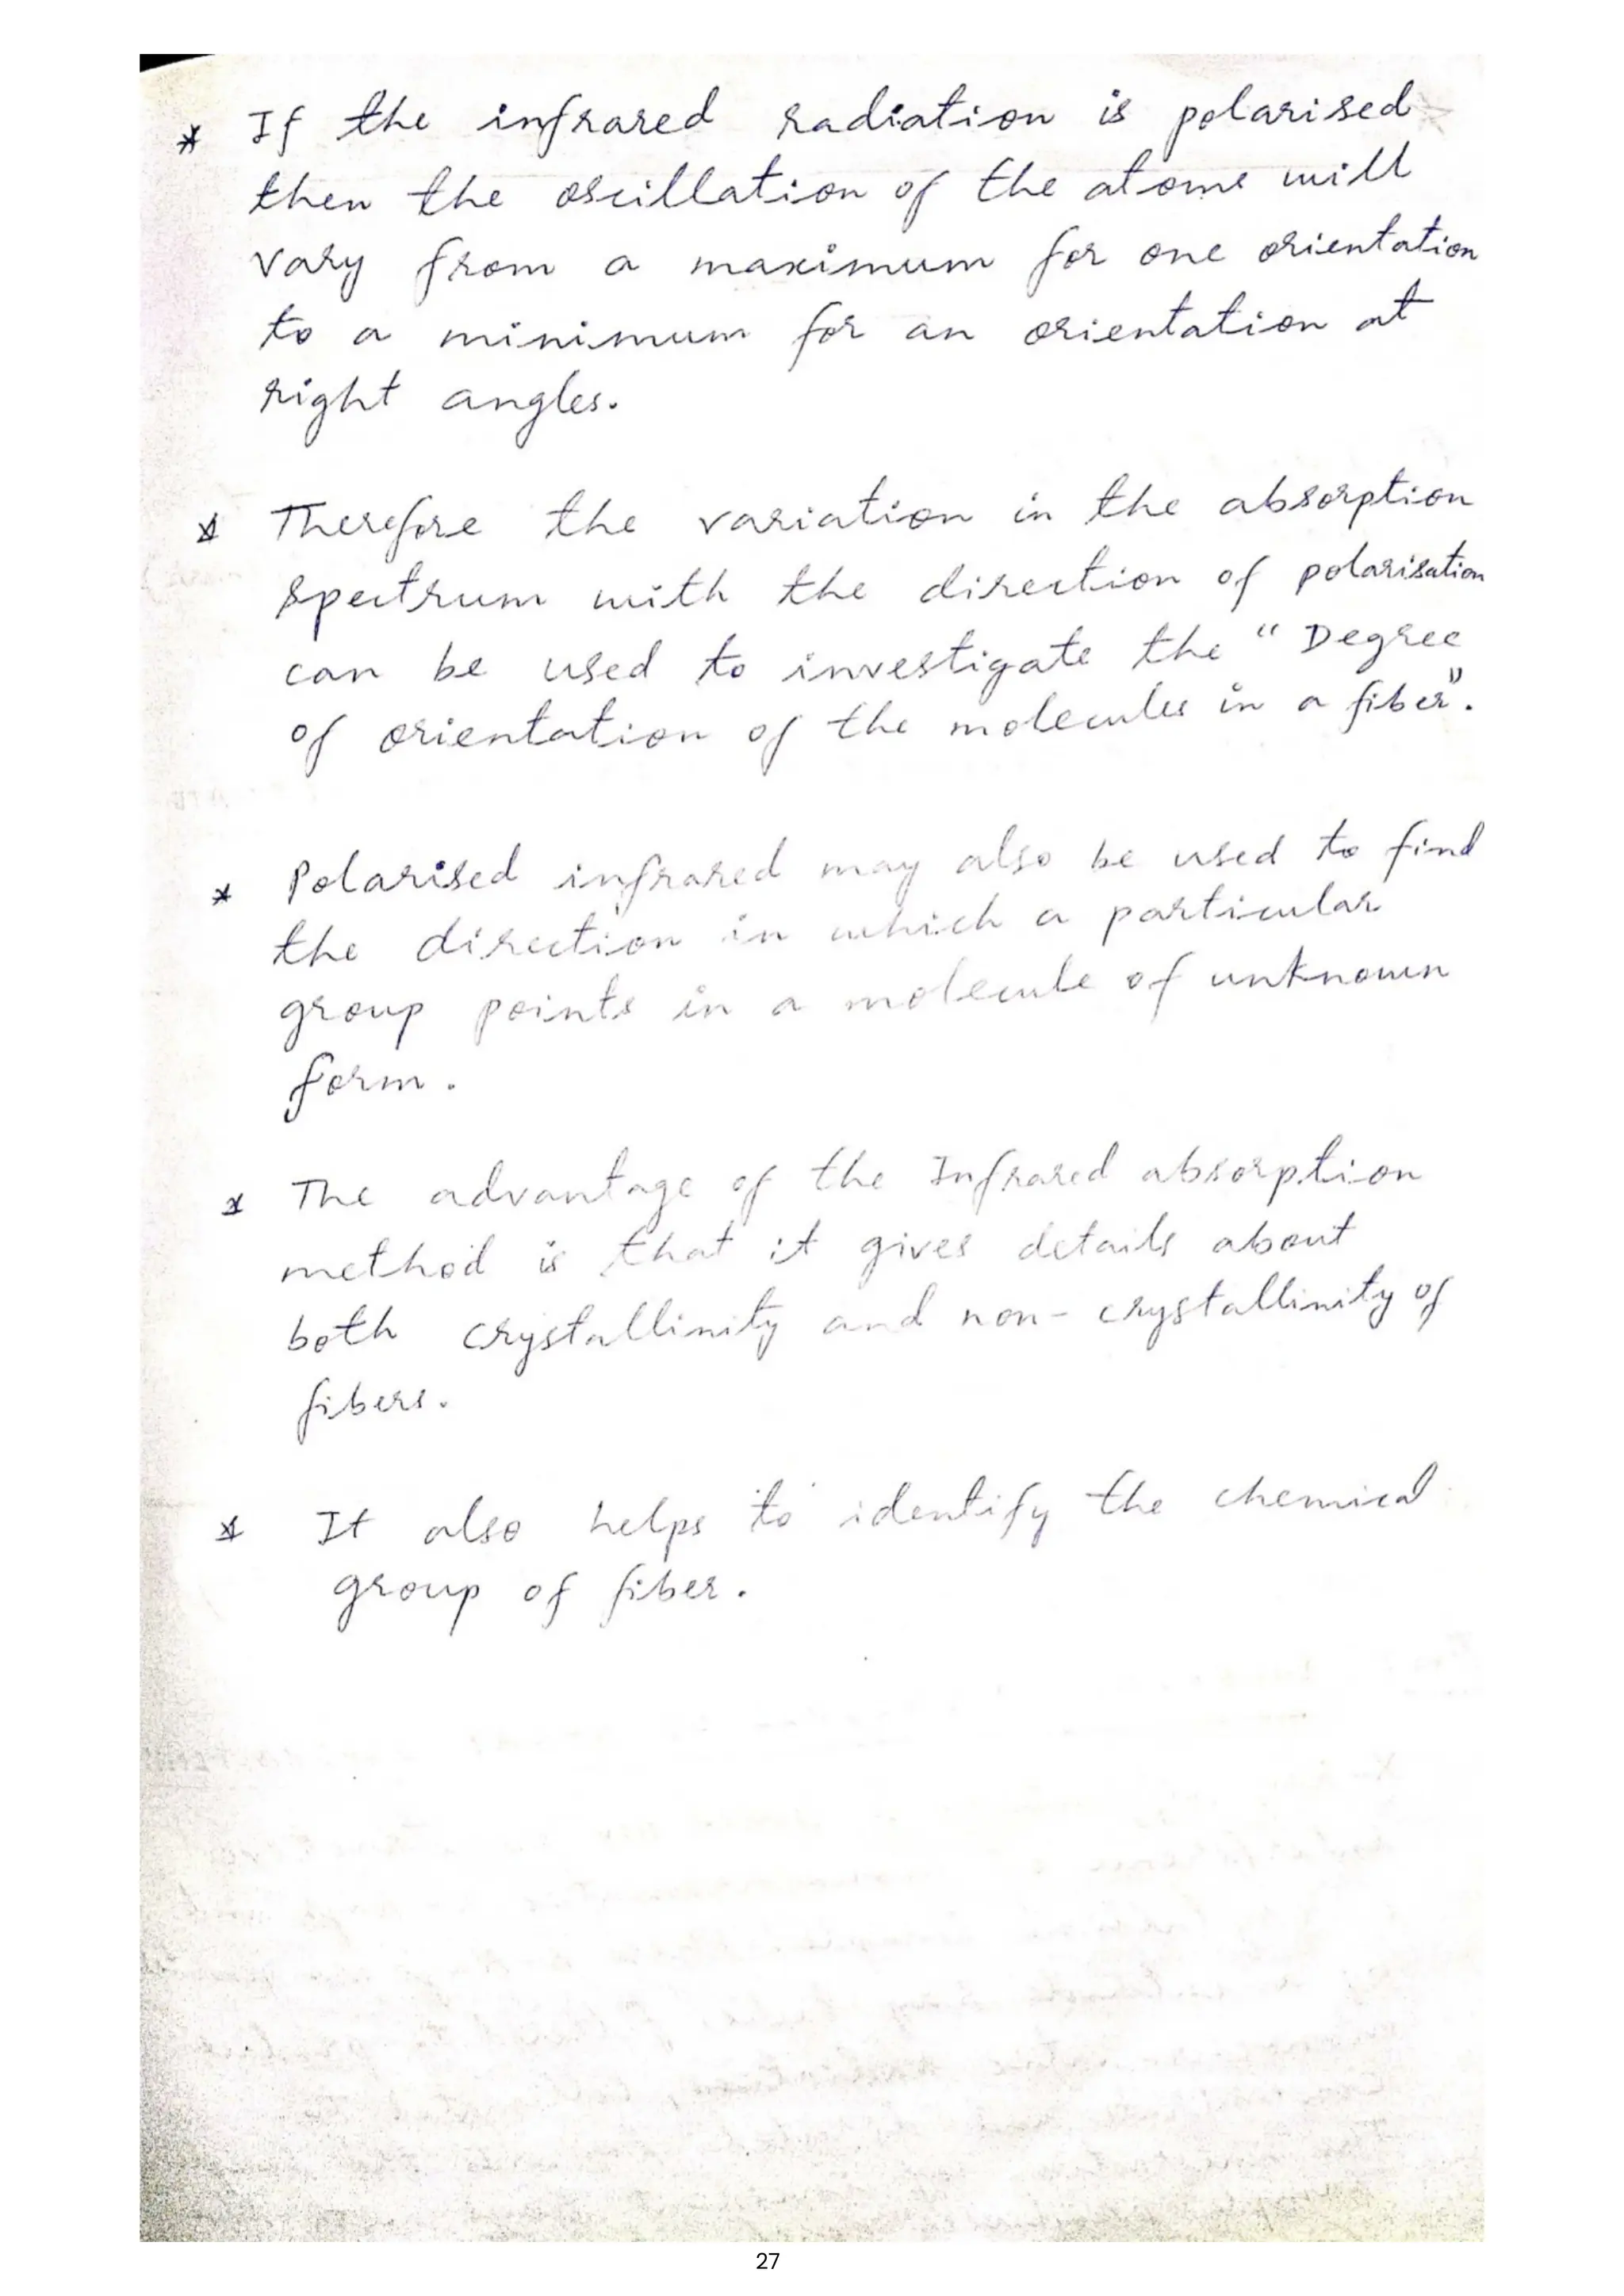 * If the infrared radiation is polarised
then the oscillation of the atoms will
vary from a maximum for one orientation
to a minimum for an orientation at
right angles.
* Therefore the variation in the absorption
spectrum with the direction of polarisation
can be used to investigate the "Degree
of orientation of the molecules in a fiber".
* Polarised infrared may also be used to find
the direction in which a particular
group points in a molecule of unknown
form.
* The advantage of the Infrared absorption
method is that it gives details about
both crystallinity and non-crystallinity of
fibers.
* It also helps to identify the chemical
group of fiber.
27